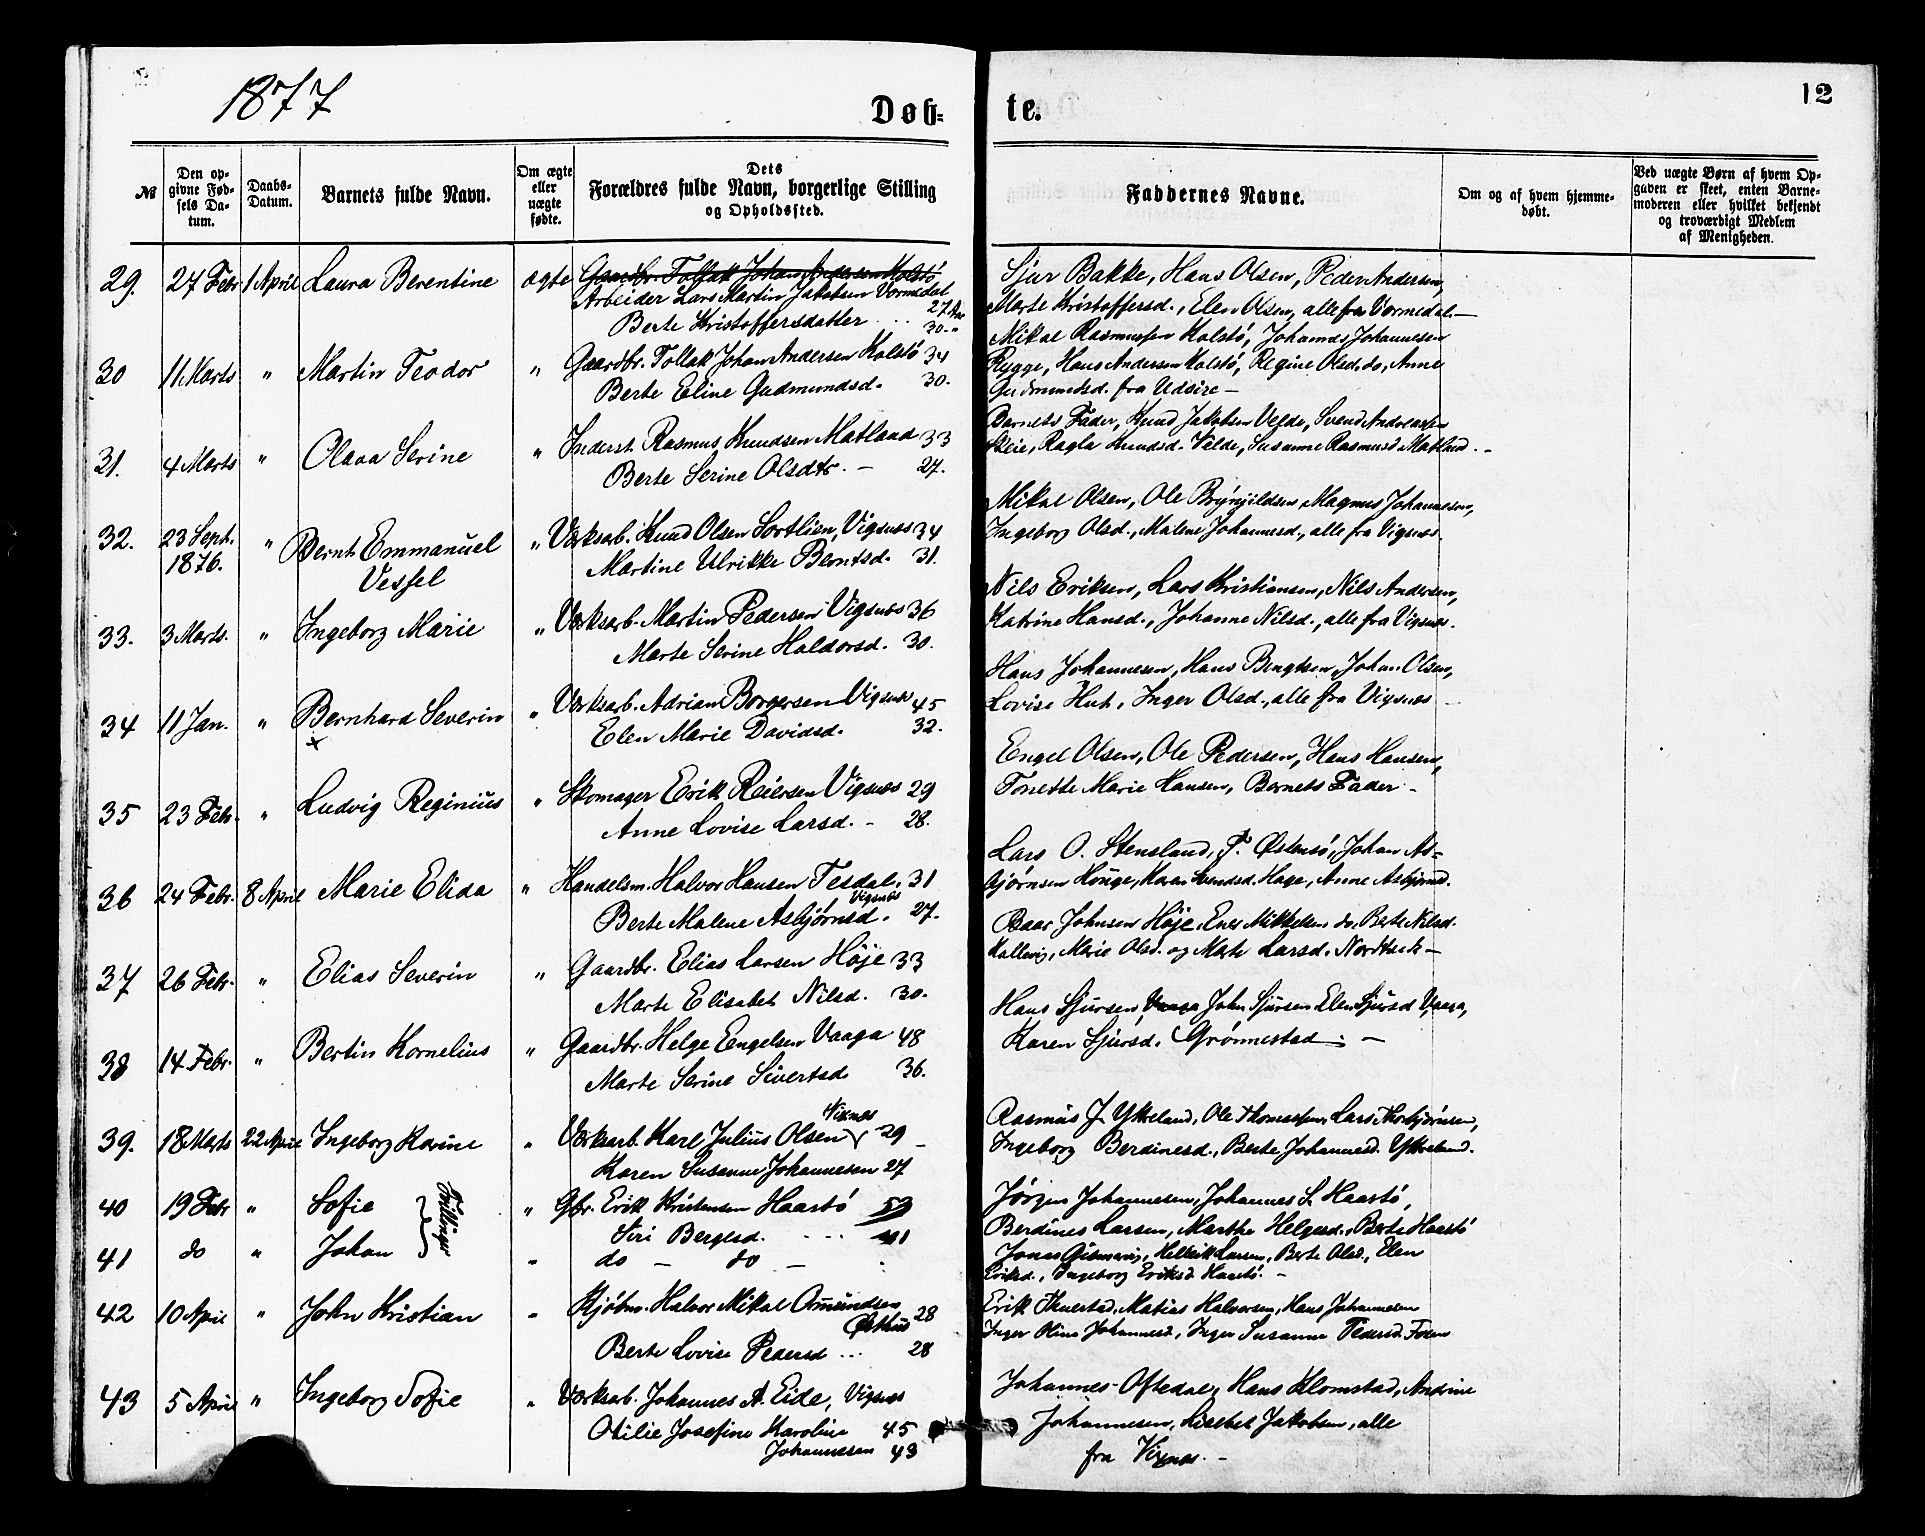 1877
Døbte.
12
№
Den opgivne Fødsels Datum.
Daabs-Datum.
Barnets fulde Navn.
Om ægte eller uægte fødte.
Dets Forældres fulde Navn, borgerlige Stilling og Opholdssted.
Faddernes Navne.
Om og af hvem hjemmedøbt.
Ved uægte Børn af hvem Opgaven er skeet, enten Barnemoderen eller hvilket bekjendt og troværdigt Medlem af Menigheden.
29. 27 Febr 1 April Laura Berentine ægte Gaardbr. Tollak Johan Andersen Kolstö
Arbeider Lars Martin Jakobsen Vormedal 27 Aar
Berte Kristoffersdatter . . . 30 - "
Sjur Bakke, Hans Olsen, Peder Andersen,
Marte Kristoffersd., Elen Olsen, alle fra Vormedal. —
30 11 Marts " Martin Teodor " Gaardbr. Tollak Johan Andersen Kolstö 34
Berte Eline Gudmundsd. 30.
Mikal Rasmussen Kolstö, Johannes Johannesen
Rygge, Hans Andersen Kolstö, Regine Olsd. do, Anne
Gudmundsd. fra Udsire —
31. 4 Marts " Olava Serine " Inderst Rasmus Knudsen Matland 33
Berte Serine Olsdtr. — 27.
Barnets Fader, Knud Jakobsen Velde, Svend Andreassen
Eeie, Ragla Knudsd. Velde, Susanne Rasmusd Matland. -
32. 23 Sept. 1876. " Bernt Emmanuel " Værksarb. Knud Olsen Sortlien, Vigsnæs 34
Vessel
Martine Ulrikke Berntsd. 31.
Mikal Olsen, Ole Brynjildsen, Magnus Johannesen,
Ingeborg Olsd., Malene Johannesd., alle fra Vigsnæs.
33. 3 Marts. " Ingeborg Marie " Værksarb. Martin Pedersen Vigsnæs 36
Marte Serine Haldorsd. 30.
Nils Eriksen, Lars Kristiansen, Nils Andersen,
Katrine Hansd., Johanne Nilsd., alle fra Vigsnæs.
34 11 Jan. " Bernhard Severin " Værksarb. Adrian Borgersen Vigsnæs 45
x
Elen Marie Davidsd. 32.
Hans Johannesen, Hans Bengtsen, Johan Olsen,
Lovise Huh, Inger Olsd., alle fra Vigsnæs
35 23 Febr. " Ludvig Reginius " Skomager Erik Reiersen Vigsnæs 29
Anne Lovise Larsd. - 28.
Engel Olsen, Ole Pedersen, Hans Hansen,
Tonette Marie Hansen, Barnets Fader -
36 24 Febr. 8 April Marie Elida " Handelsm. Halvor Hansen Tesdal, 31
Vigsnæs
Berte Malene Asbjørnsd. 27.
Lars O. Stensland, T. Østensö, Johan As=
bjørnsen Houge, Karen Svendsd. Hage, Anne Asbjørnsd.
37 26 Febr. " Elias Severin " Gaardbr. Elias Larsen Höje 33
Marte Elisabet Nilsd. 30.
Baar Johnsen Höje, Ener Mikkelsen do, Berte Nilsd.
Kallevig, Marie Olsd. og Marte Larsd. —
38 14 Febr. " Bertin Kornelius " Gaardbr. Helge Engelsen Vaaga 48
Marte Serine Sivertsd 36.
Hans Sjursen, Vaaga John Sjursen, Elen Sjursd Vaaga,
Karen Sjursd. Grønnestad. —
39. 18 Marts 22 April Ingeborg Karine " Værksarb. Karl Julius Olsen 29
Vixnes
Karen Susanne Johannesen 27
Rasmus J. Ytreland, Ole Thomassen, Lars Thorbjørnsen,
Ingeborg Berdinesd., Berte Johannesd. Ytreland.
40 19 Febr " Sofie " Gbr. Erik Kristensen Haastö 53
Tvillinger
Siri Bergesd. . . . 41
Jørgen Johannesen, Johannes S. Haastö,
Berdines Larsen, Marthe Helgesd., Berte Haastö
41 do " Johan " do — do —
Jonas Gismarvig, Helrik Larsen, Berte Olsd., Elen
Eriksd., Ingeborg Eriksd. Haastö. -
42 10 April " John Kristian " Kjöbm. Halvor Mikal Omundsen 28
Østhus
Berte Lovise Pedersd ... 28
Erik Thuestad, Matias Halvorsen, Hans Johannesen
Inger Oline Johannesd, Inger Susanne Pedersd. Fosen
43 5 April " Ingeborg Sofie " Værksarb. Johannes A. Eide, Vigsnæs
Otilie Josefine Karoline 45
Johannesen 43
Johannes Oftedal, Hans Klomstad, Andrine
Johannesen, Lisebet Jakobsen, alle
fra Vixnes. -